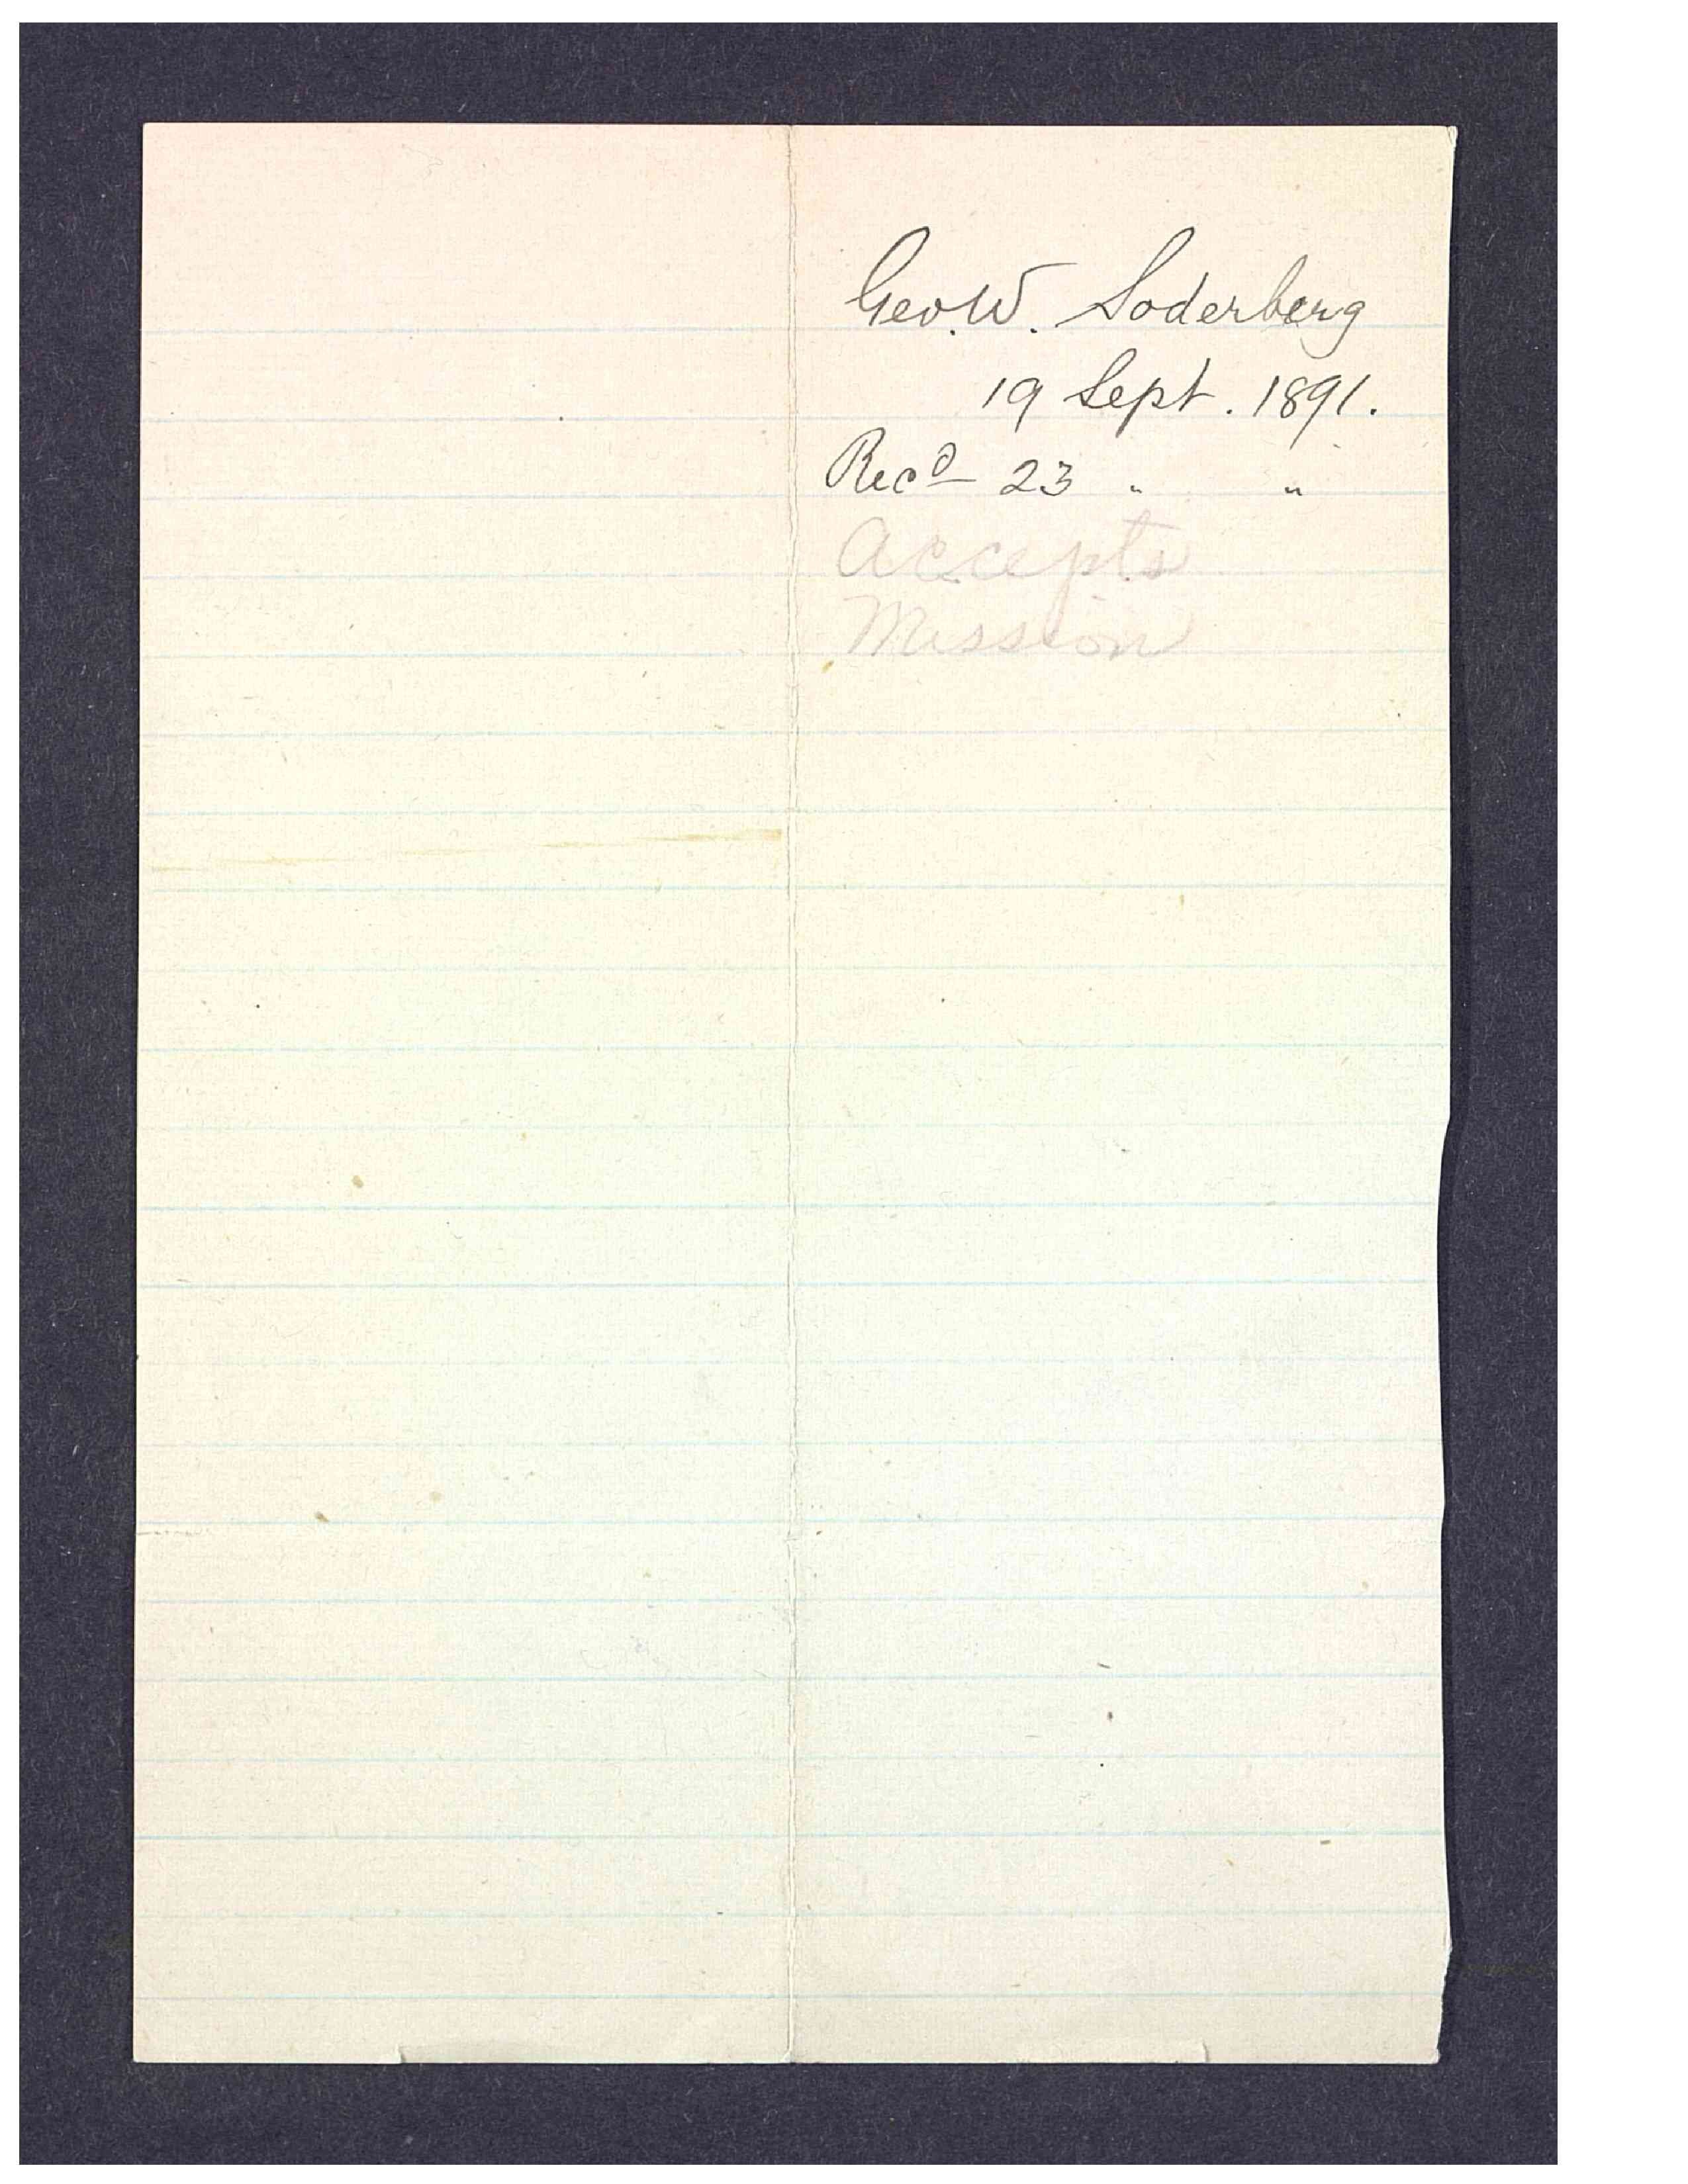 Geo. W. Soderberg
19 Sept. 1891.
Recd 23 " "
Accepts
Mission